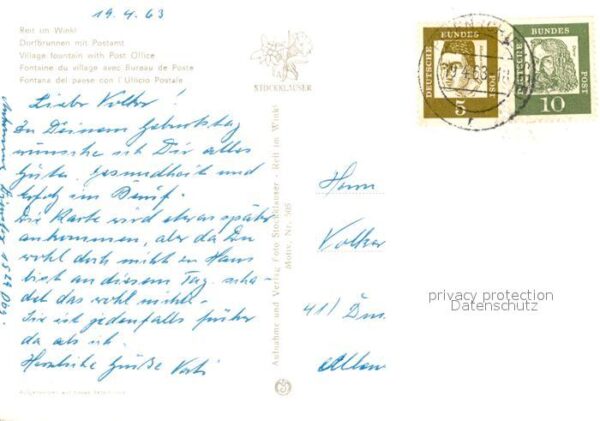 19.4.63
Reit im Winkl
Dorfbrunnen mit Postamt
Village fountain with Post Office
Fontaine du village avec Bureau de Poste
Fontana del paese con l'Uficio Postale
STOCKKLAUSER
Lieber Volker!
Zu Deinem Geburtstag
wünsche ich Dir alles
Gute, Gesundheit und
Erfolg im Beruf.
Die Karte wird etwas später
ankommen, aber da Du
wohl doch nicht im Haus
bist an diesem Tag, scha-
det das wohl nichts.
Sie ist jedenfalls früher
da als ich.
Herzliche Grüße
Aufnahme und Verlag Foto Stockklauser · Reit im Winkl
Motiv. Nr. 505
DEUTSCHE BUNDES POST
5
DEUTSCHE BUNDES POST
10
Herrn
Volker
41)
privacy protection
Datenschutz